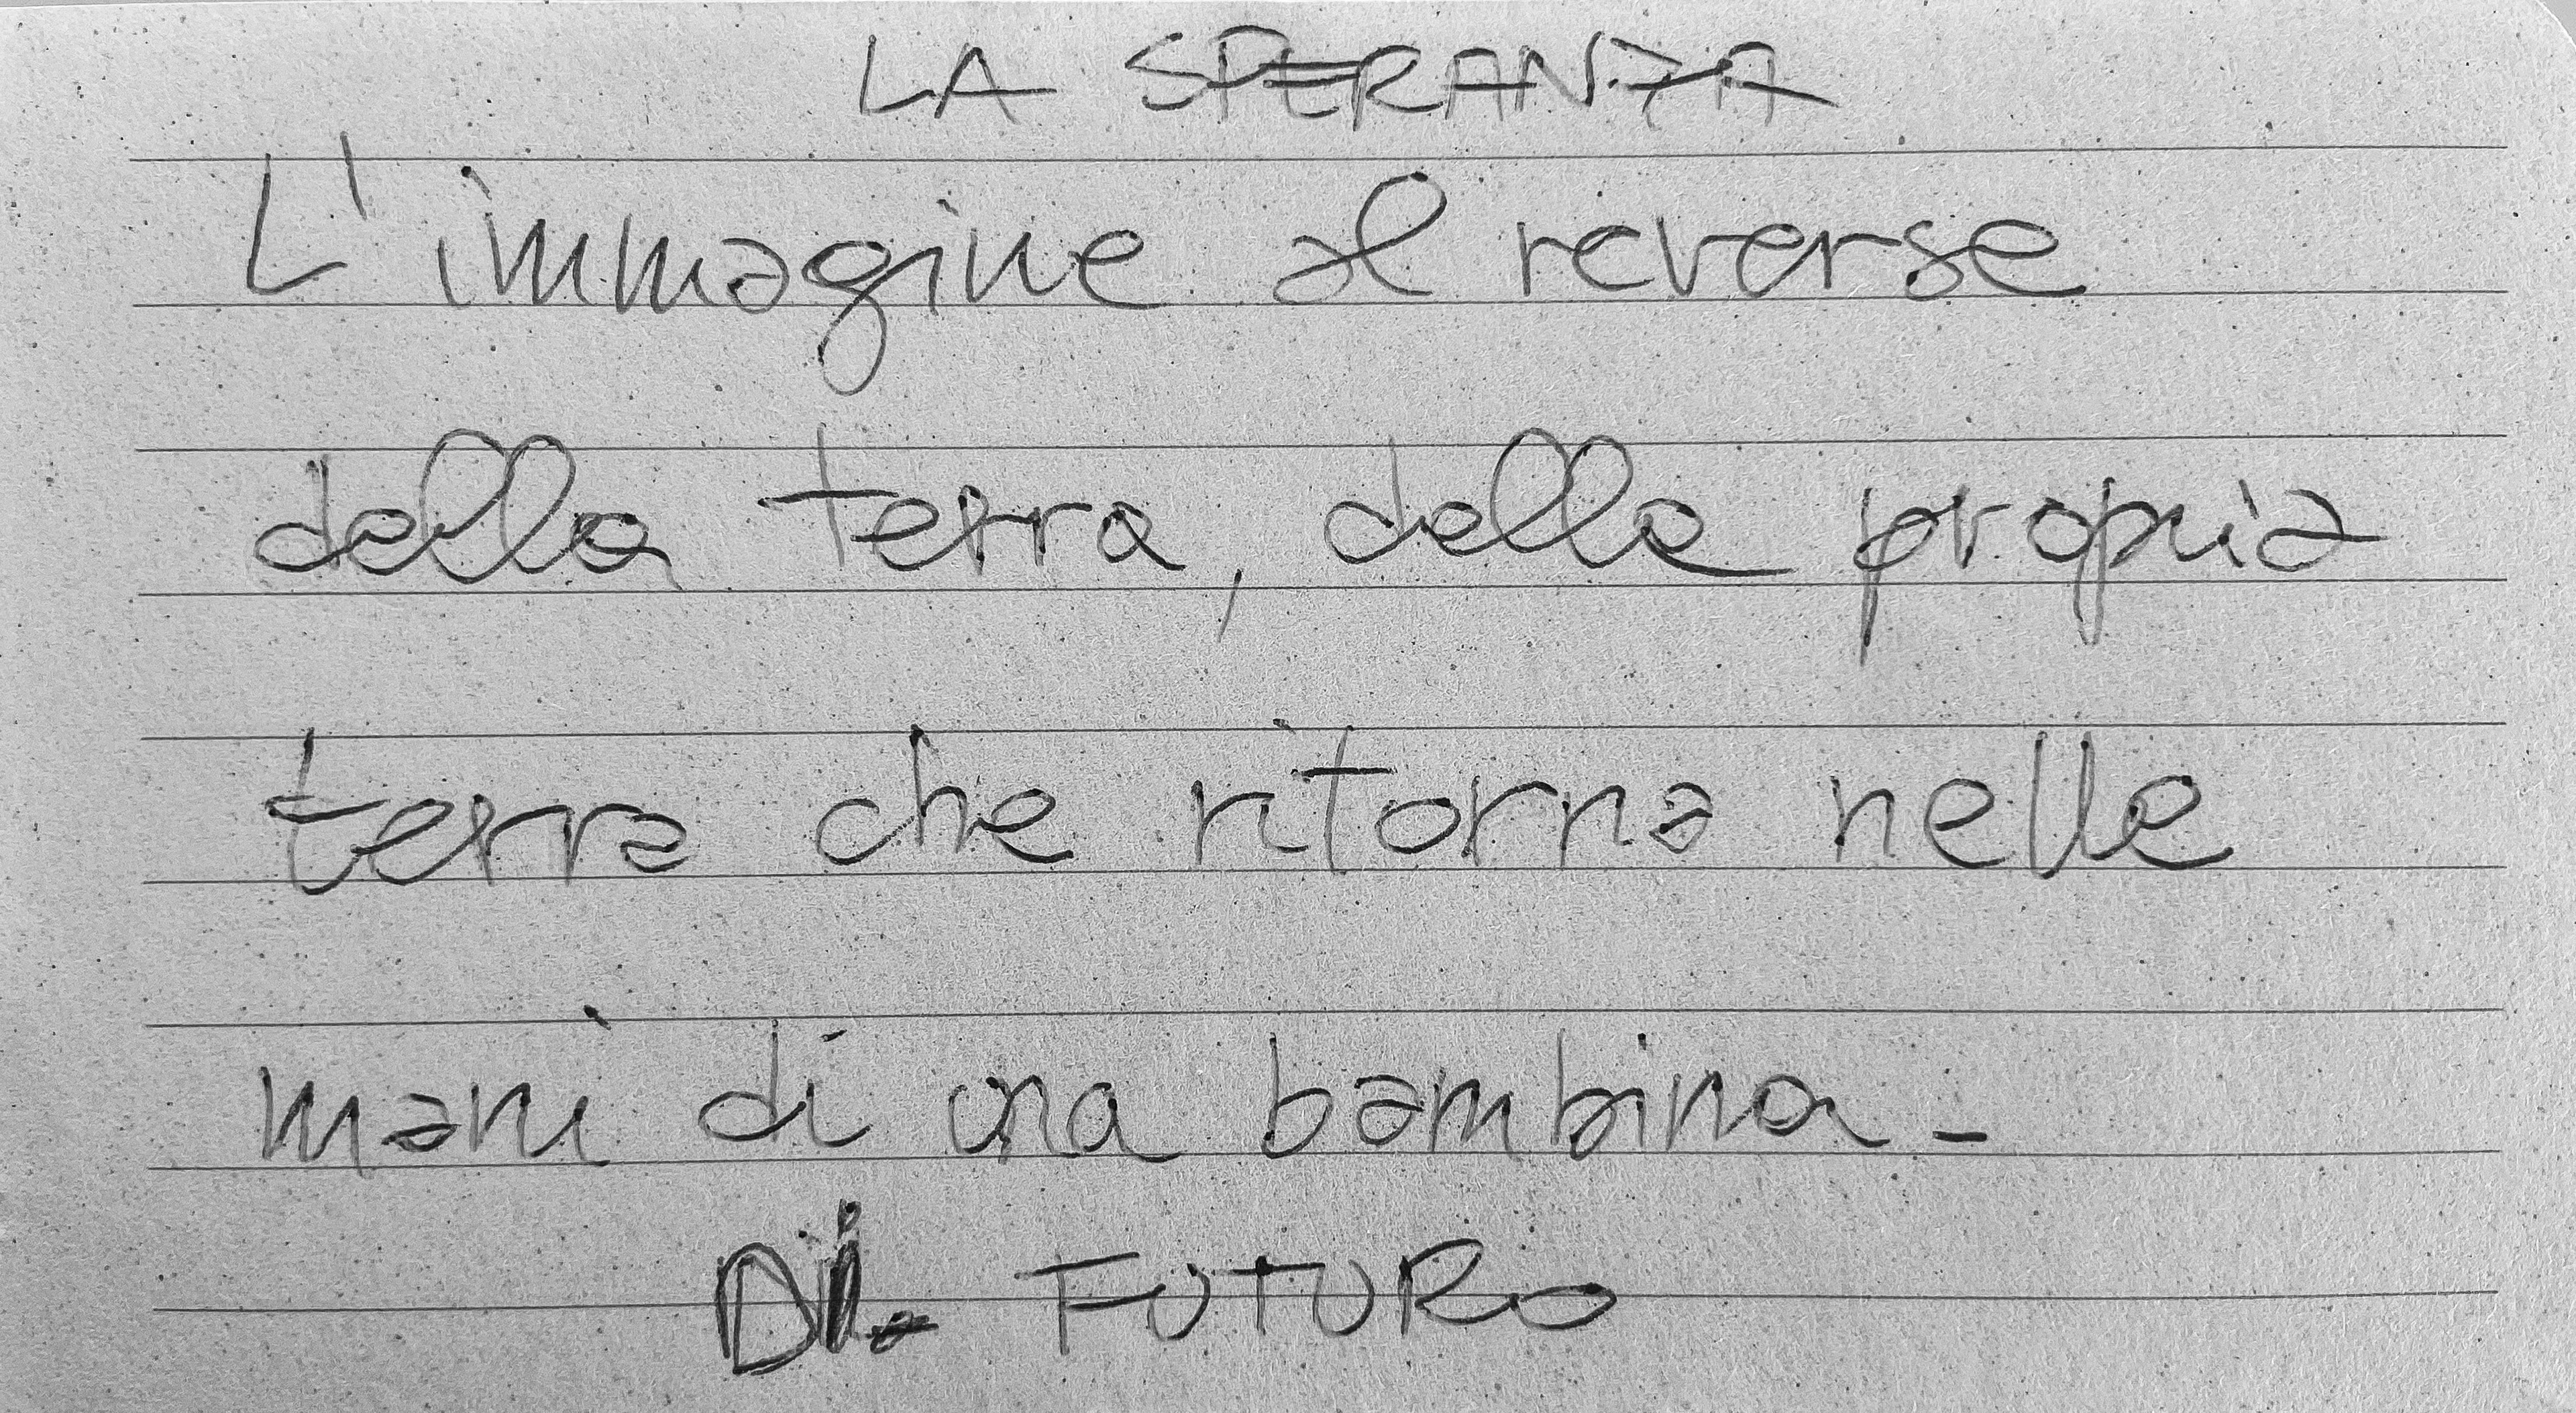 LA SPERANZA
L'immagine al reverse
della terra, della propria
terra che ritorna nelle
mani di una bambina -
DI FUTURO